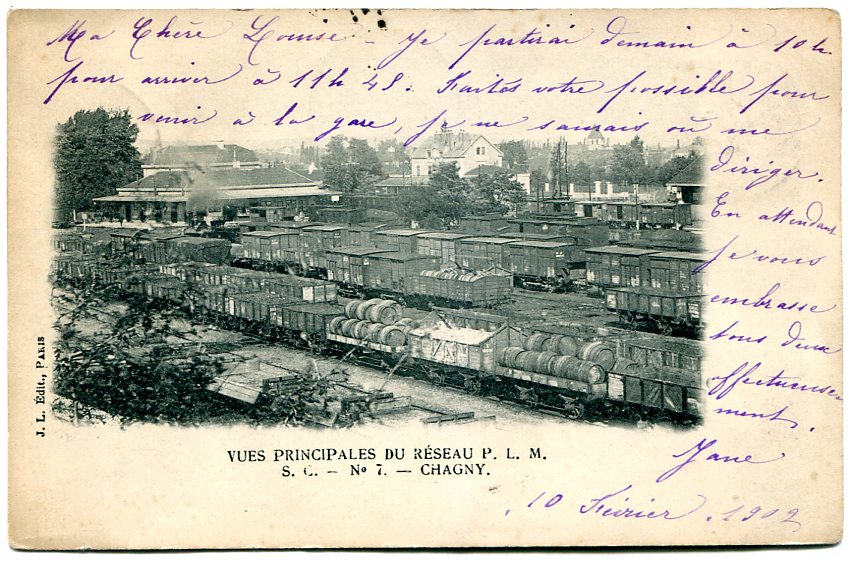 Ma Chère Louise - Je partirai demain à 10h
pour arriver à 11h 48. Faites votre possible pour
venir à la gare, je ne saurais où me
diriger.
En attendant
je vous
embrasse
tous deux
affectueuse-
ment.
Jane
10 Février 1902
J. L. Edit., PARIS
VUES PRINCIPALES DU RÉSEAU P. L. M.
S. C. — No 7. — CHAGNY.